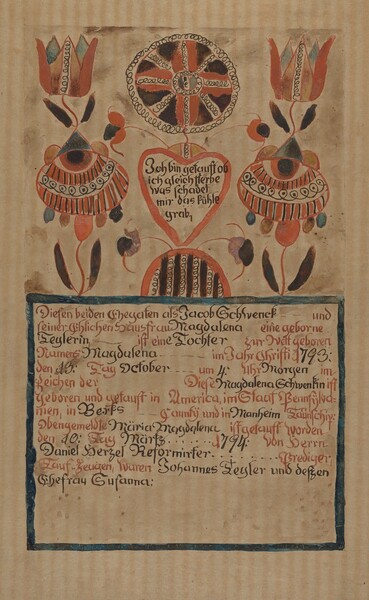 Ich bin getauft ob
ich gleich sterbe
was schadet
mir das kühle
grab,
Diesen beiden Ehegaten als Jacob Schwenck und
seiner Ehlichen Hausfrau Magdalena eine geborne
Zeglerin ist eine Tochter zur Welt geboren
Namens Magdalena im Jahr Christi 1793:
den 10. Tag October am 4: Uhr Morgen im
Zeichen der Diese Magdalena Schwenkin ist
geboren und getauft in America, im Staat Pennsylva-
nien, in Berks Caunty und in Manheim Taunschip:
Obengemeldte Maria Magdalena ist getauft worden
den 10: Tag Märtz 1794: von Herrn
Daniel Herzel Reformirter Prediger
Tauf Zeugen, waren Johannes Zegler und deßen
Ehefrau Susanna: